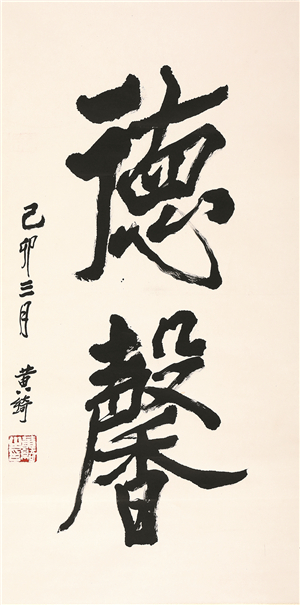 德馨
己卯三月 黄绮